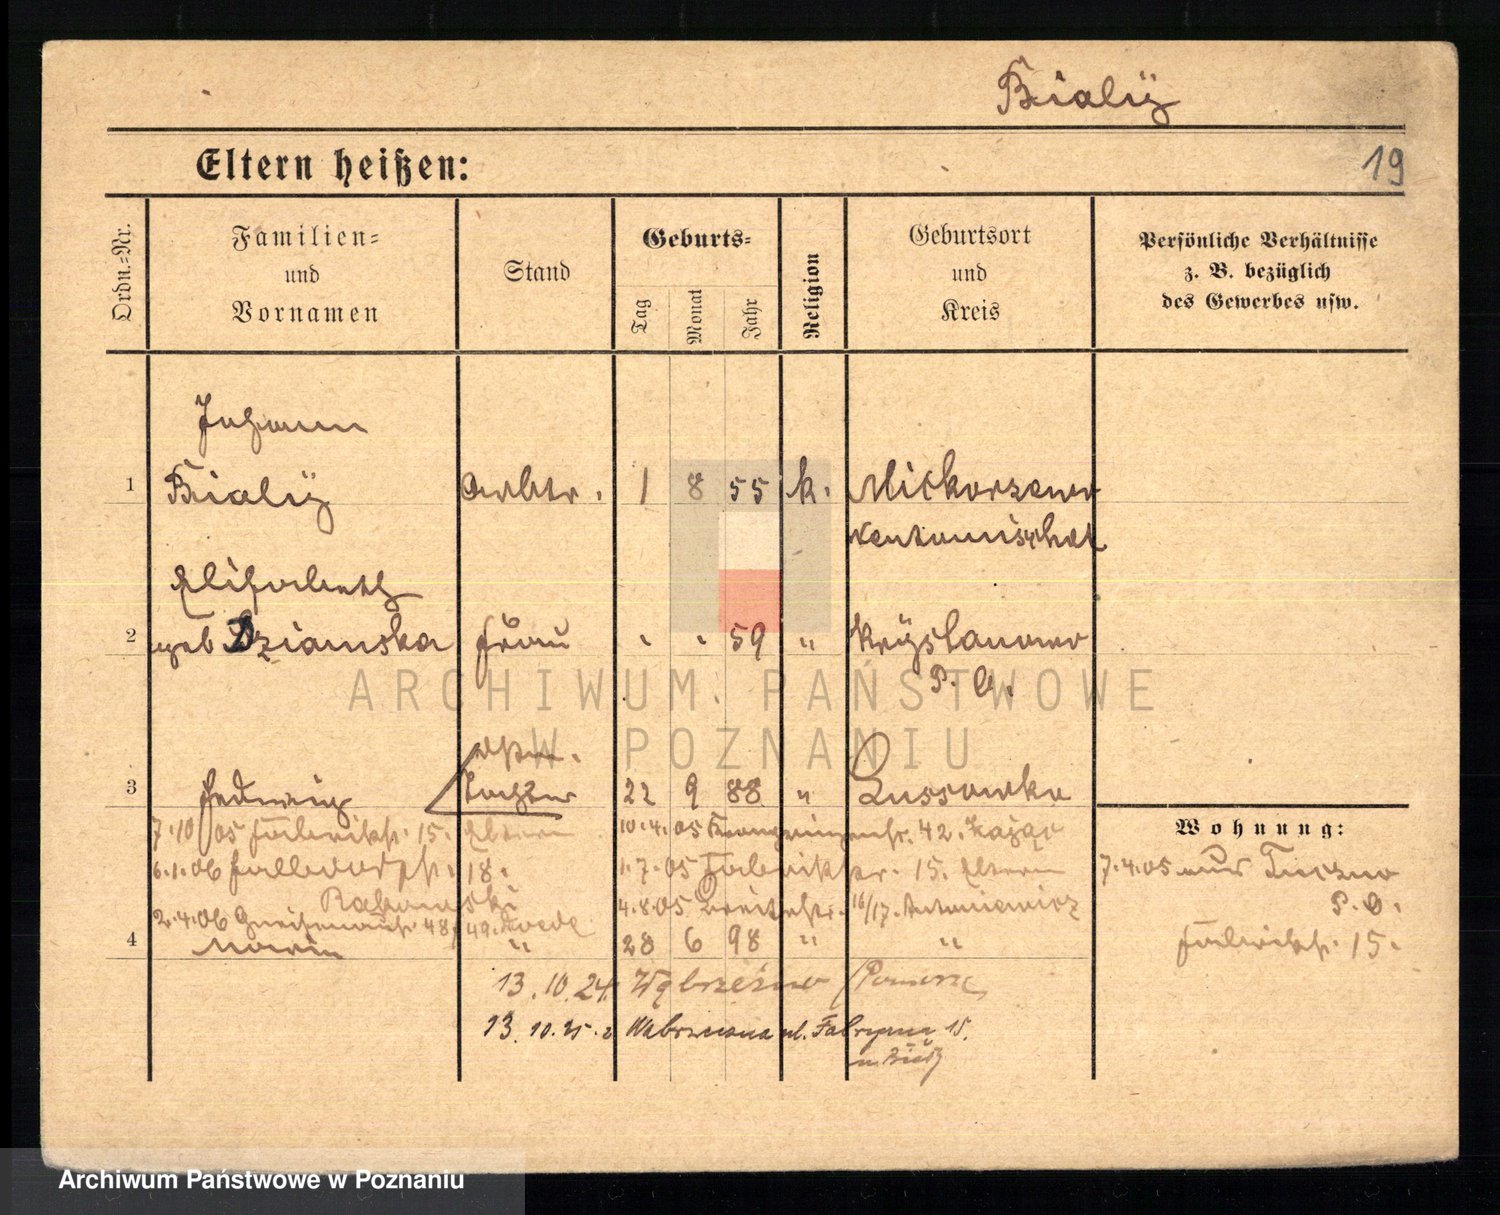 Bialÿ
Eltern heißen:
19
Ordn.-Nr.
Familien-
und
Vornamen
Stand
Geburts-
Tag
Monat
Jahr
Religion
Geburtsort
und
Kreis
Persönliche Verhältnisse
z. B. bezüglich
des Gewerbes usw.
Johann
1 Bialÿ Arbtr. 1 8 55 k.
Elisabeth
2 geb Dziamska Frau " " 59 "
P. O.
3 Hedwig Tochter 22 9 88 " Lussowko
Wohnung:
7.10 05 Fabrikstr. 15. Eltern
10.4.05 42.
7.4.05 aus
P. O.
6.1.06 18.
1.7.05 Fabrikstr. 15. Eltern
4.8.05 Breitestr. 16/17. Antoniewicz
2.4.06 Gneisenaustr. 48/49.
Fabrikstr. 15.
4 " 28 6 98 " "
13.10.24 Wąbrzeźno
13.10.25. ul. Fabryczna 15.
ARCHIWUM PAŃSTWOWE
W POZNANIU
Archiwum Państwowe w Poznaniu